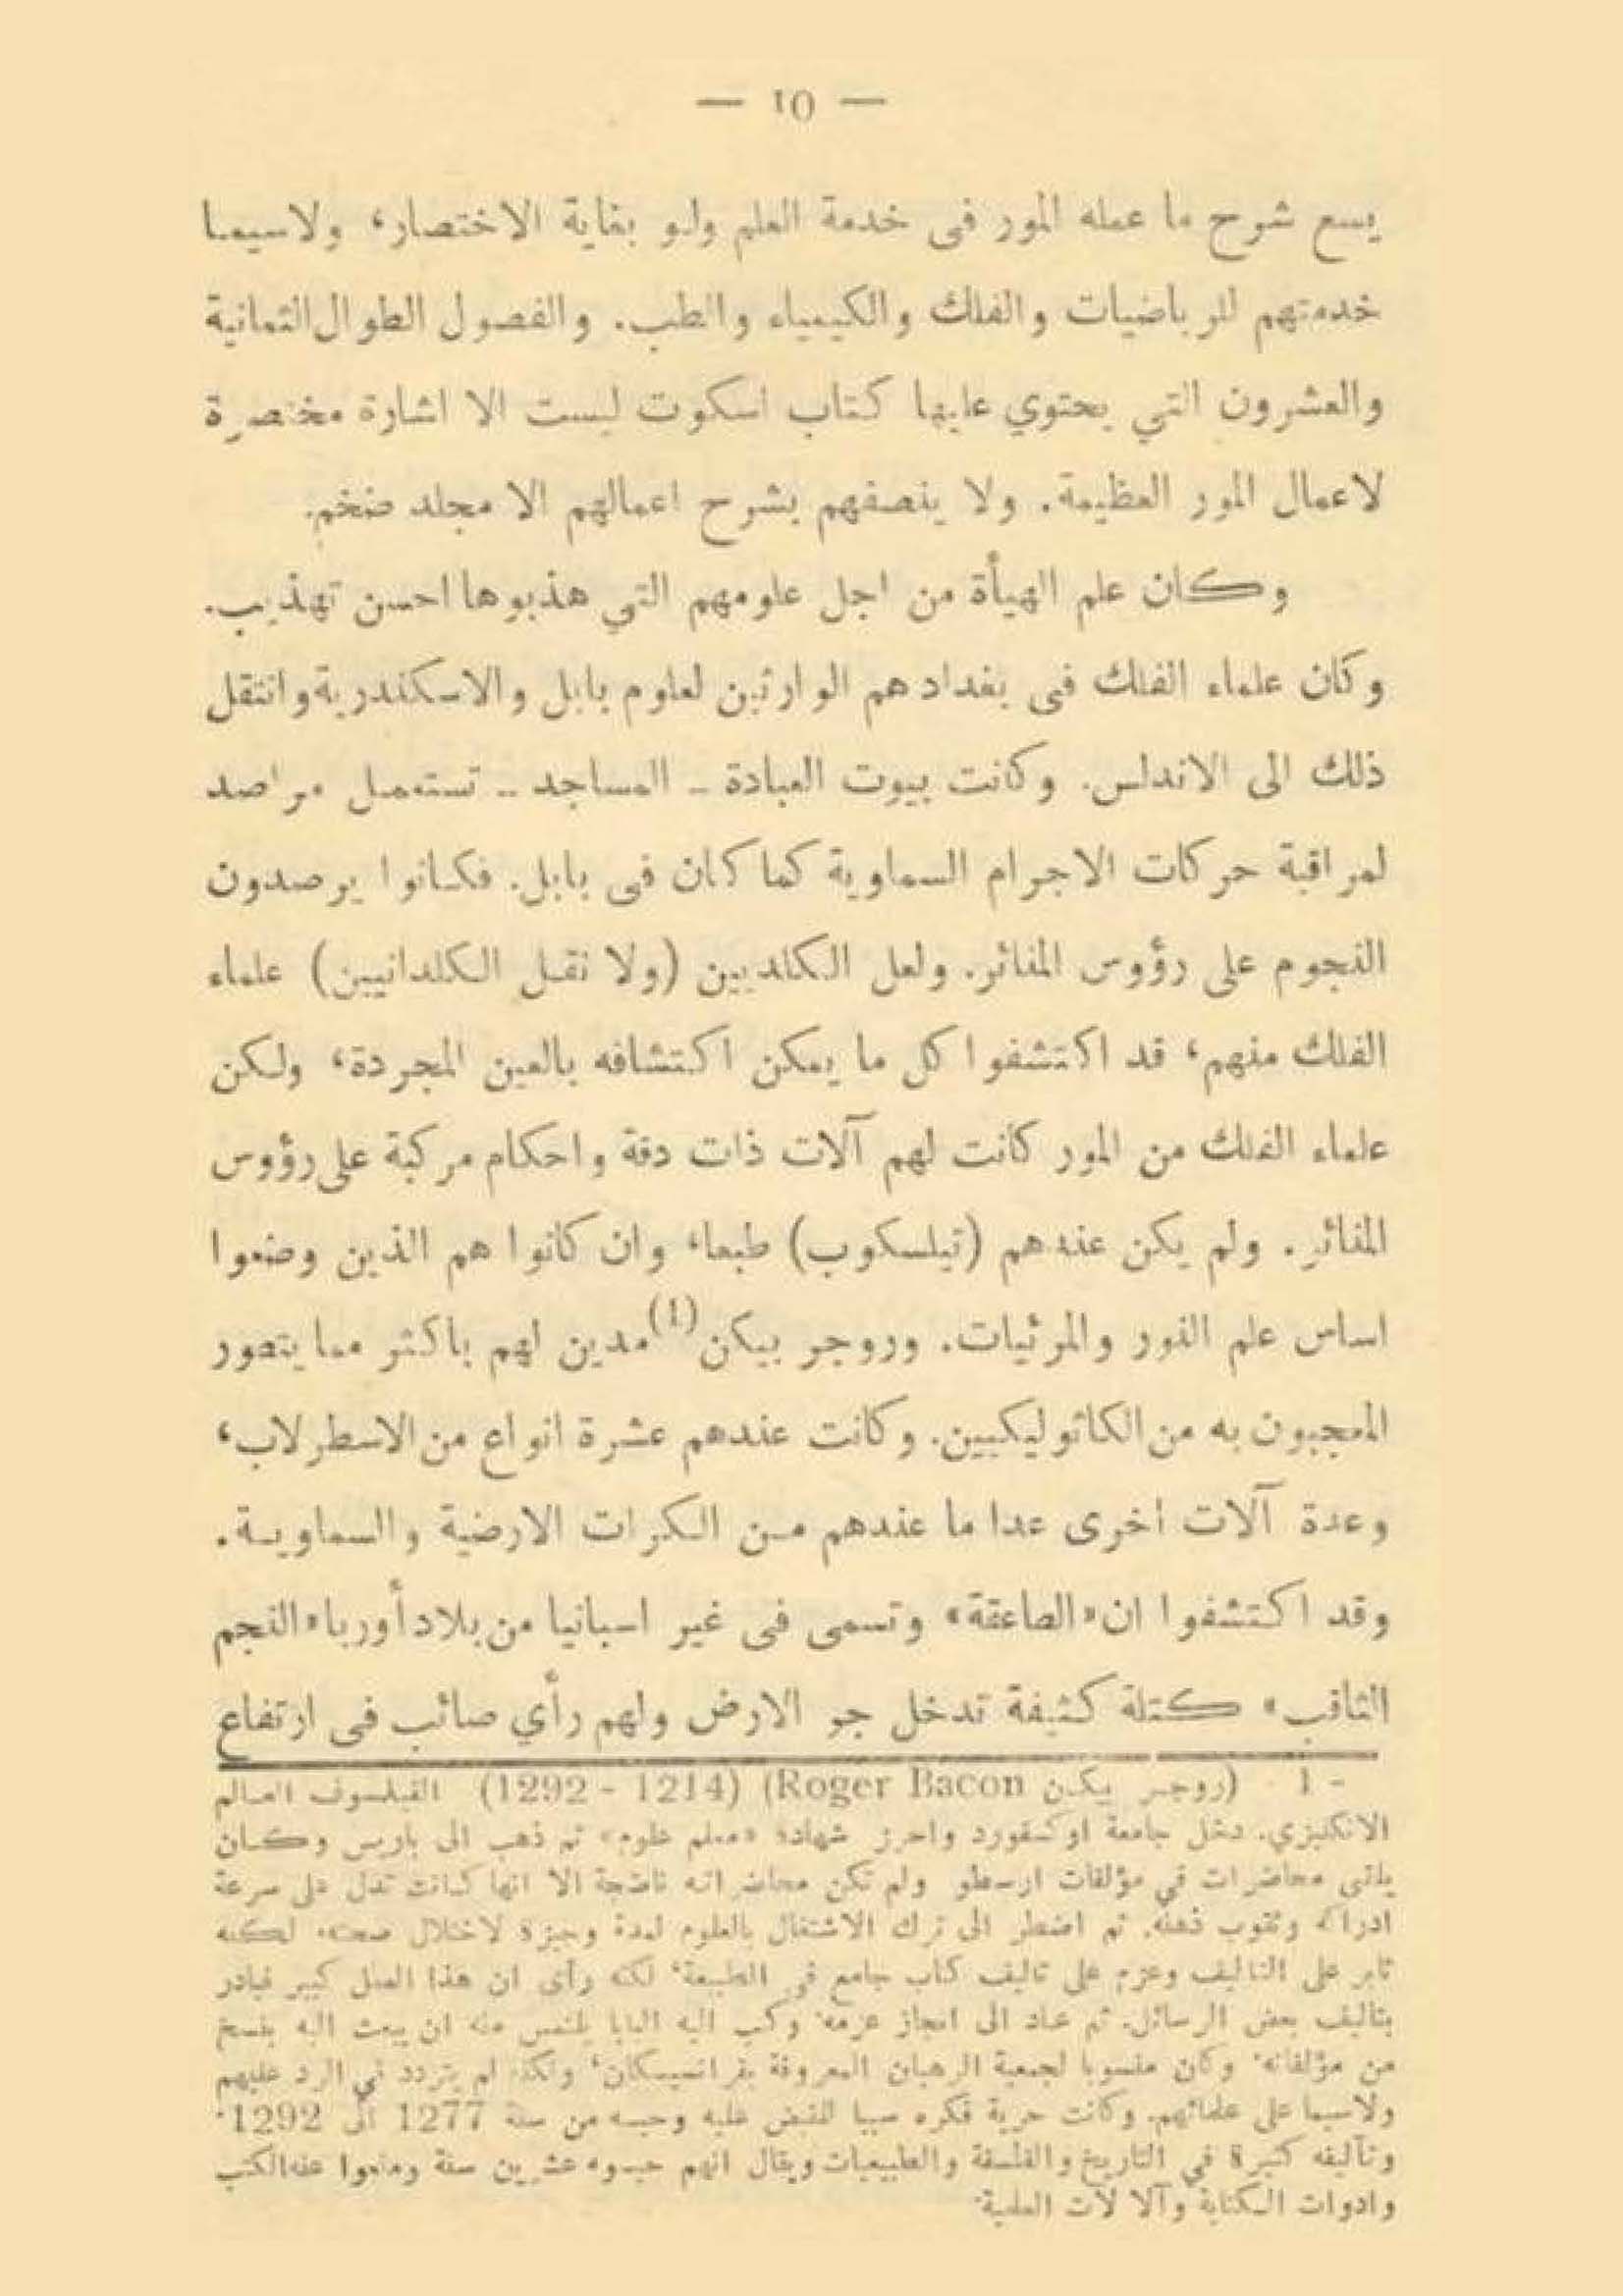 — ١٥ —
يسع شرح ما عمله المور فى خدمة العلم ولو بغاية الاختصار، ولاسيما
خدمتهم للرياضيات والفلك والكيمياء والطب. والفصول الطوال الثمانية
والعشرون التي يحتوي عليها كتاب اسكوت ليست الا اشارة مختصرة
لاعمال المور العظيمة. ولا ينصفهم بشرح اعمالهم الا مجلد ضخم.
وكان علم الهيأة من اجل علومهم التي هذبوها احسن تهذيب.
وكان علماء الفلك فى بغداد هم الوارثين لعلوم بابل والاسكندرية وانتقل
ذلك الى الاندلس. وكانت بيوت العبادة - المساجد - تستعمل مراصد
لمراقبة حركات الاجرام السماوية كما كان فى بابل. فكانوا يرصدون
النجوم على رؤوس المنائر. ولعل الكلديين (ولا نقل الكلدانيين) علماء
الفلك منهم، قد اكتشفوا كل ما يمكن اكتشافه بالعين المجردة، ولكن
علماء الفلك من المور كانت لهم آلات ذات دقة واحكام مركبة على رؤوس
المنائر. ولم يكن عندهم (تيلسكوب) طبعا، وان كانوا هم الذين وضعوا
اساس علم النور والمرئيات. وروجر بيكن (1) مدين لهم باكثر مما يتصور
المعجبون به من الكاثوليكيين. وكانت عندهم عشرة انواع من الاسطرلاب،
وعدة آلات أخرى عدا ما عندهم من الكرات الارضية والسماوية.
وقد اكتشفوا ان «الصاعقة» وتسمى فى غير اسبانيا من بلاد أوربا «النجم
الثاقب» كتلة كثيفة تدخل جو الارض ولهم رأي صائب فى ارتفاع
1 - (روجر بيكن Roger Bacon) (1214 - 1292) الفيلسوف العالم
الانكليزي. دخل جامعة اوكسفورد واحرز شهادة «معلم علوم» ثم ذهب الى باريس وكان
يلقى محاضرات في مؤلفات ارسطو ولم تكن محاضراته ناضجة الا انها كانت تدل على سرعة
ادراكه وثقوب ذهنه. ثم اضطر الى ترك الاشتغال بالعلوم لمدة وجيزة لاختلال صحته. لكنه
ثابر على التاليف وعزم على تاليف كتاب جامع في الطبيعة، لكنه رأى ان هذا العمل كبير فبادر
بتاليف بعض الرسائل. ثم عاد الى انجاز عزمه. وكتب اليه البابا يلتمس منه ان يبعث اليه بنسخ
من مؤلفاته. وكان منسوبا لجمعية الرهبان المعروفة بفرانسيسكان، ولكنه لم يتردد في الرد عليهم
ولاسيما على علمائهم. وكانت حرية فكره سببا للقبض عليه وحبسه من سنة 1277 الى 1292.
وتآليفه كثيرة في التاريخ والفلسفة والطبيعيات ويقال انهم حبسوه عشرين سنة ومنعوا عنه الكتب
وادوات الكتابة وآلا لآت العلمية.